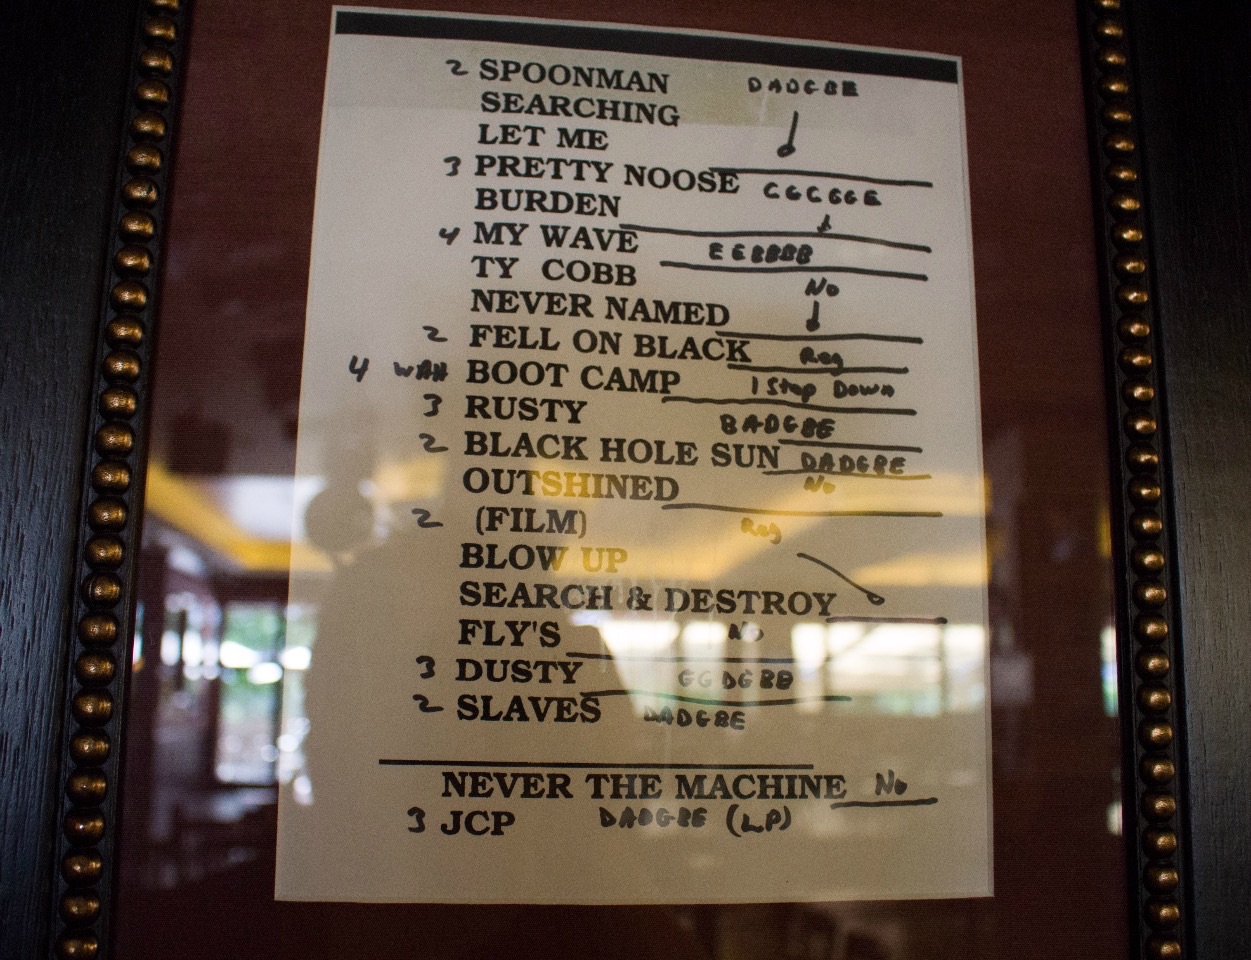 2 SPOONMAN DADGBE
SEARCHING
LET ME
3 PRETTY NOOSE CGCGGE
BURDEN
4 MY WAVE EEBBBB
TY COBB No
NEVER NAMED
2 FELL ON BLACK Reg
4 WAH BOOT CAMP 1 Step Down
3 RUSTY BADGBE
2 BLACK HOLE SUN DADGBE
OUTSHINED No
2 (FILM) Reg
BLOW UP
SEARCH & DESTROY
FLY'S No
3 DUSTY GGDGBB
2 SLAVES DADGBE
NEVER THE MACHINE No
3 JCP DADGBE (LP)